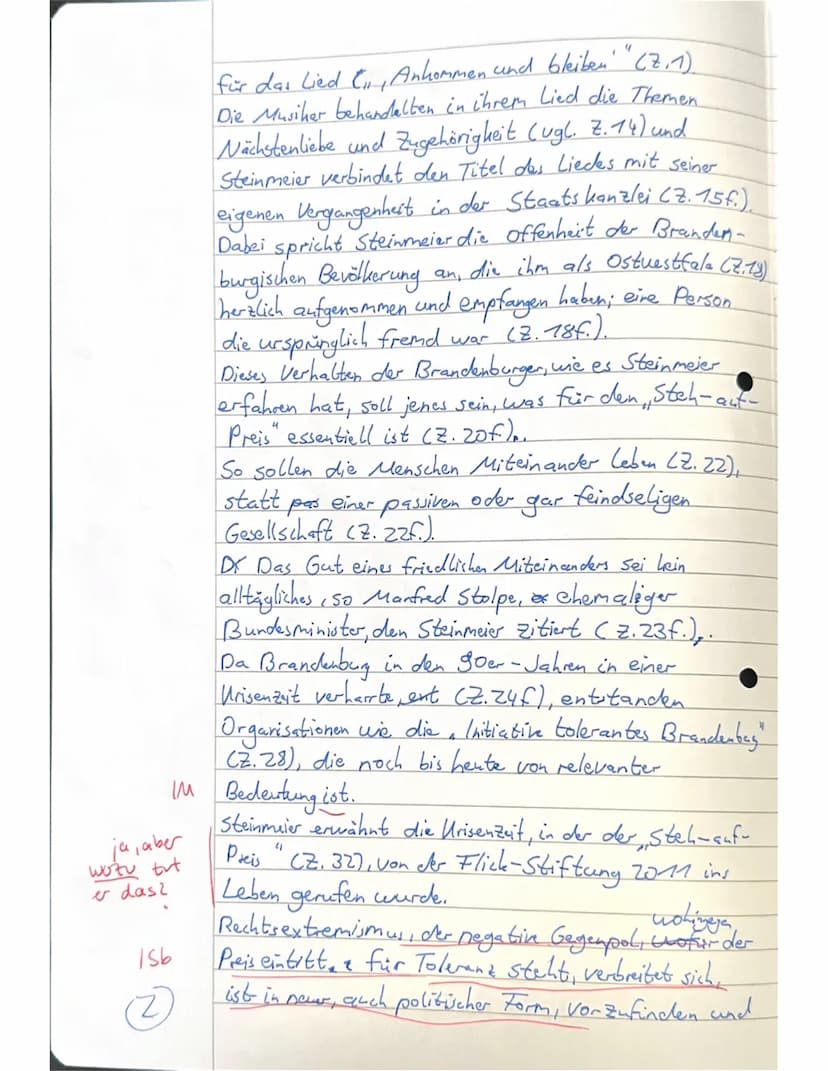 für das Lied „‚Ankommen und bleiben'" (Z.1)
Die Musiker behandelten in ihrem Lied die Themen
Nächstenliebe und Zugehörigkeit (vgl. Z.14) und
Steinmeier verbindet den Titel des Liedes mit seiner
eigenen Vergangenheit in der Staatskanzlei (Z.15f.).
Dabei spricht Steinmeier die Offenheit der Branden-
burgischen Bevölkerung an, die ihm als Ostwestfale (Z.18)
herzlich aufgenommen und empfangen haben; eine Person
die ursprünglich fremd war (Z.18f.).
Dieses Verhalten der Brandenburger, wie es Steinmeier
erfahren hat, soll jenes sein, was für den „Steh-auf-
Preis" essentiell ist (Z.20f).
So sollen die Menschen Miteinander leben (Z.22),
statt pas einer passiven oder gar feindseligen
Gesellschaft (Z.22f.).
Das Gut eines friedlichen Miteinanders sei kein
alltägliches, so Manfred Stolpe, ehemaliger
Bundesminister, den Steinmeier zitiert (Z.23f.).
Da Brandenburg in den 90er-Jahren in einer
Krisenzeit verharrte, ent (Z.24f), entstanden
Organisationen wie die „Initiative tolerantes Brandenbug"
(Z.28), die noch bis heute von relevanter
IM Bedeutung ist.
Steinmeier erwähnt die Krisenzeit, in der der „Steh-auf-
ja, aber
Preis" (Z.32), von der Flick-Stiftung 2011 ins
wozu tut
Leben gerufen wurde.
er das?
wohingegen
Rechtsextremismus, der negative Gegenpol, wofür der
ISb Preis eintritt, für Toleranz steht, verbreitet sich,
2 ist in neuer, auch politischer Form, vorzufinden und